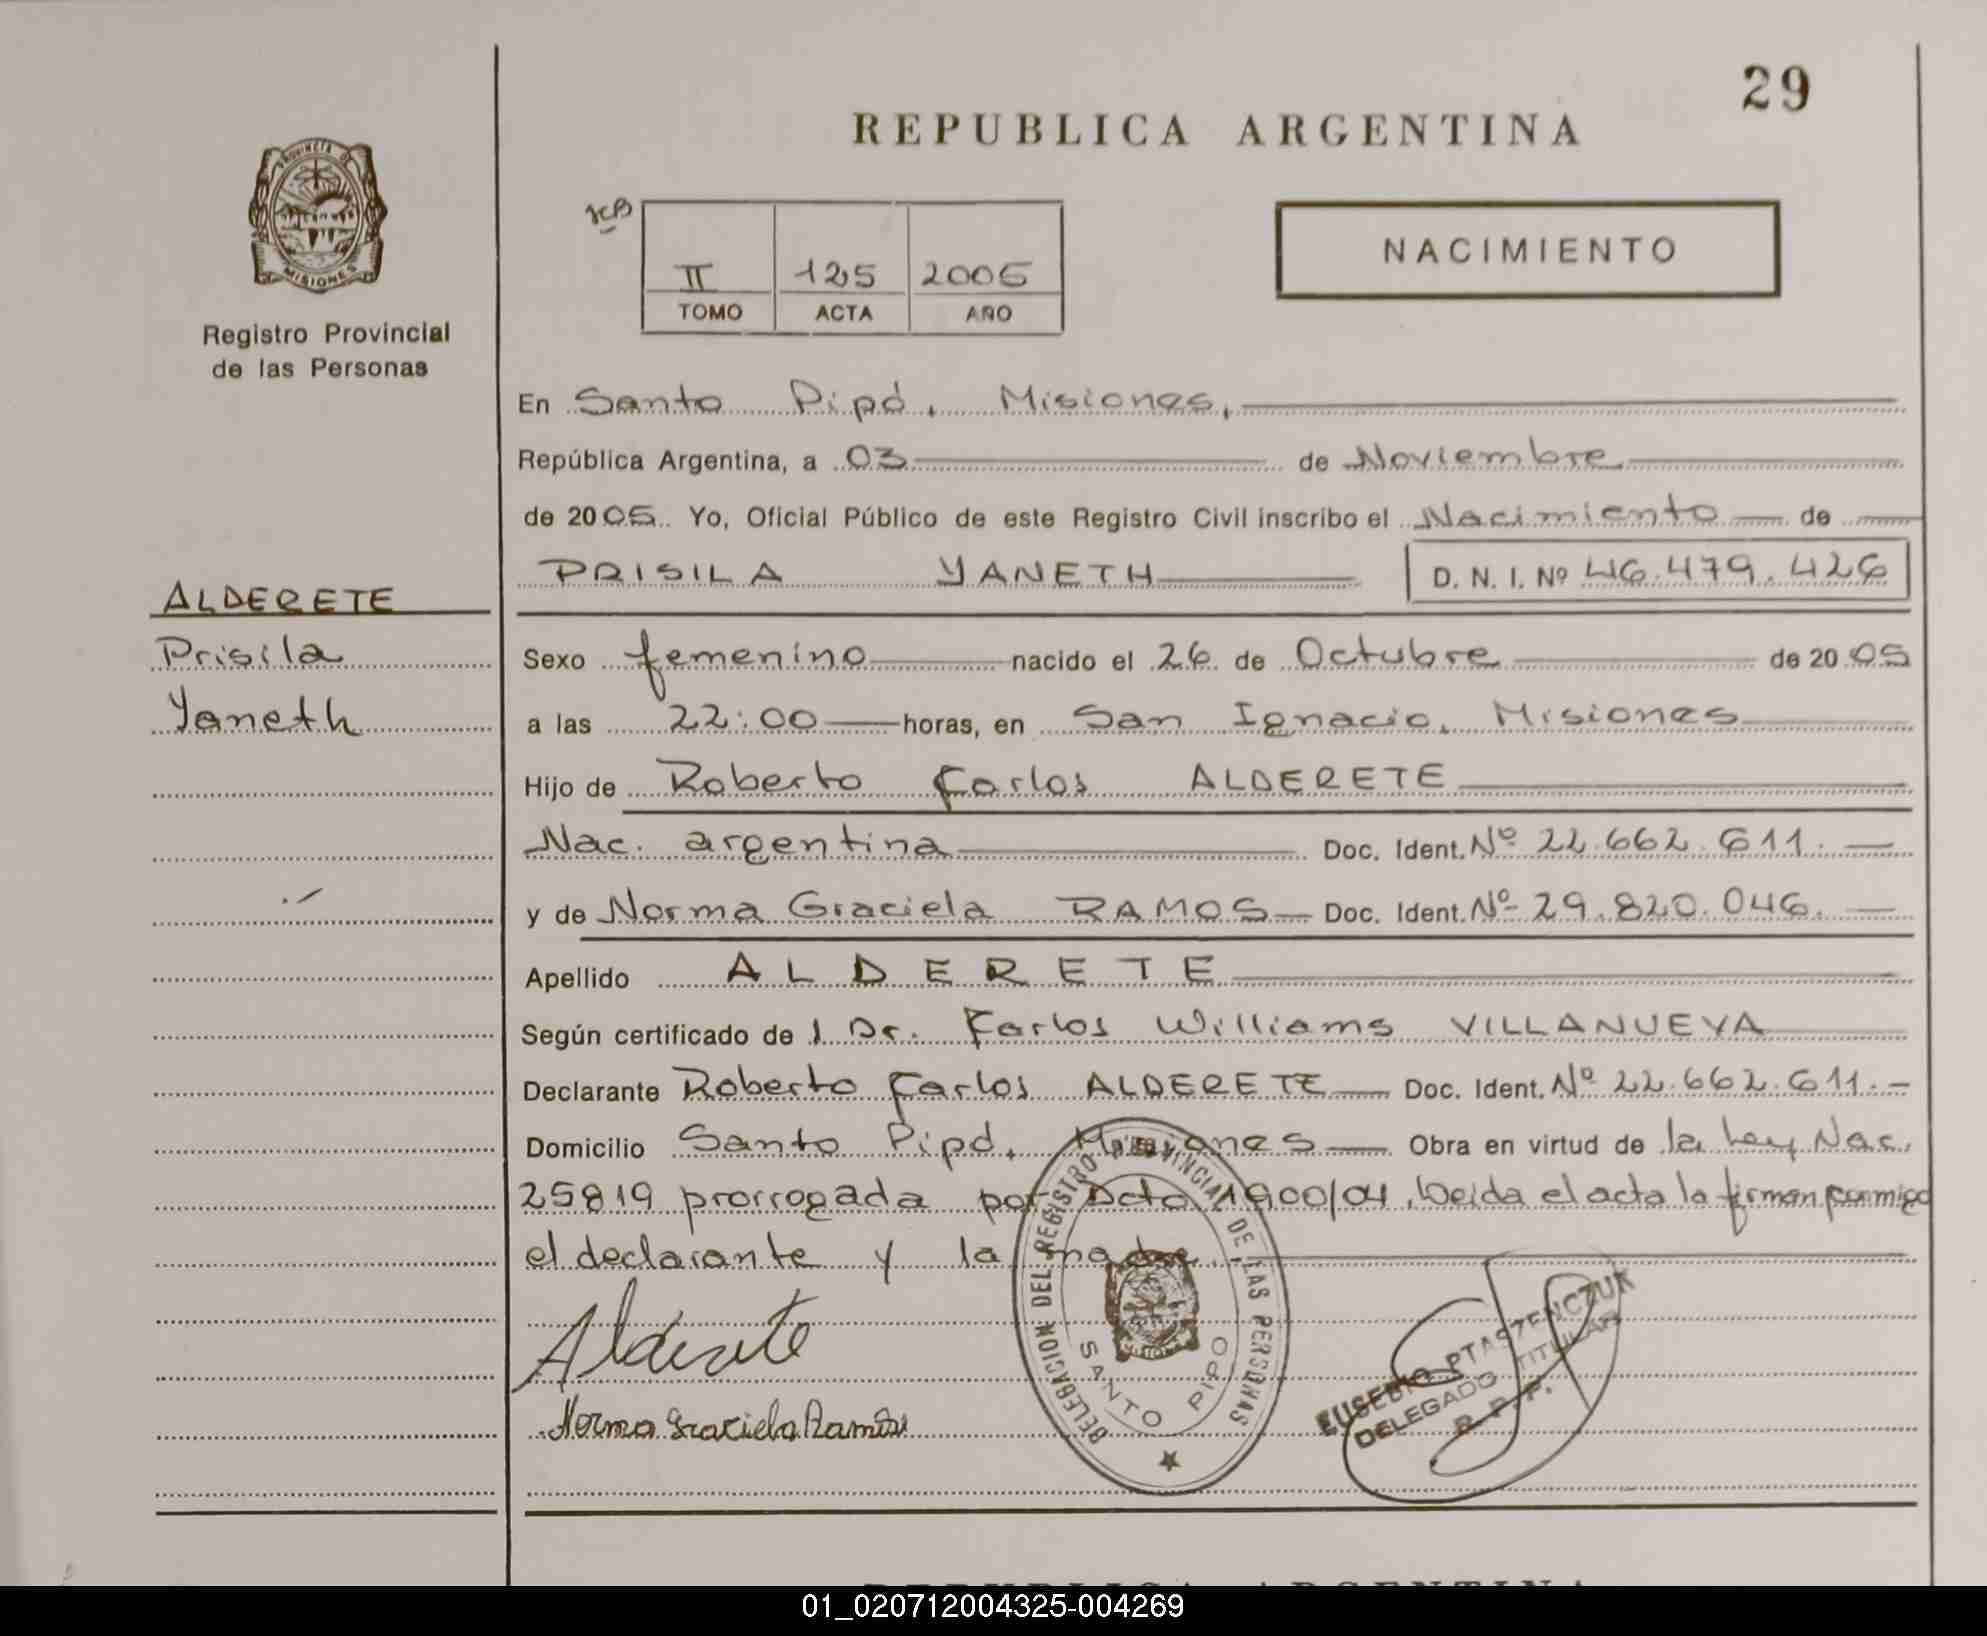 29
REPUBLICA ARGENTINA
PROVINCIA DE
MISIONES
Registro Provincial
de las Personas
II 125 2005
TOMO ACTA AÑO
NACIMIENTO
En Santo Pipó, Misiones,
República Argentina, a 03 de Noviembre
de 2005 Yo, Oficial Público de este Registro Civil inscribo el Nacimiento de
PRISILA YANETH D. N. I. Nº 46.479.426
ALDERETE
Prisila
Yaneth
Sexo femenino nacido el 26 de Octubre de 2005
a las 22:00 horas, en San Ignacio, Misiones
Hijo de Roberto Carlos ALDERETE
Nac. argentina Doc. Ident. Nº 22.662.611.
y de Norma Graciela RAMOS Doc. Ident. Nº 29.820.046.
Apellido ALDERETE
Según certificado de l Dr. Carlos Williams VILLANUEVA
Declarante Roberto Carlos ALDERETE Doc. Ident. Nº 22.662.611.-
Domicilio Santo Pipó, Misiones Obra en virtud de la Ley Nac.
25819 prorrogada por Dcto 1900/04, Leida el acta la firman conmigo
el declarante y la madre.
Alderete
Norma Graciela Ramos
DELEGACION DEL REGISTRO PROVINCIAL DE LAS PERSONAS
SANTO PIPO
EUSEBIO PTASZENCZUK
DELEGADO TITULAR
R. P. P.
REPUBLICA ARGENTINA
01_020712004325-004269